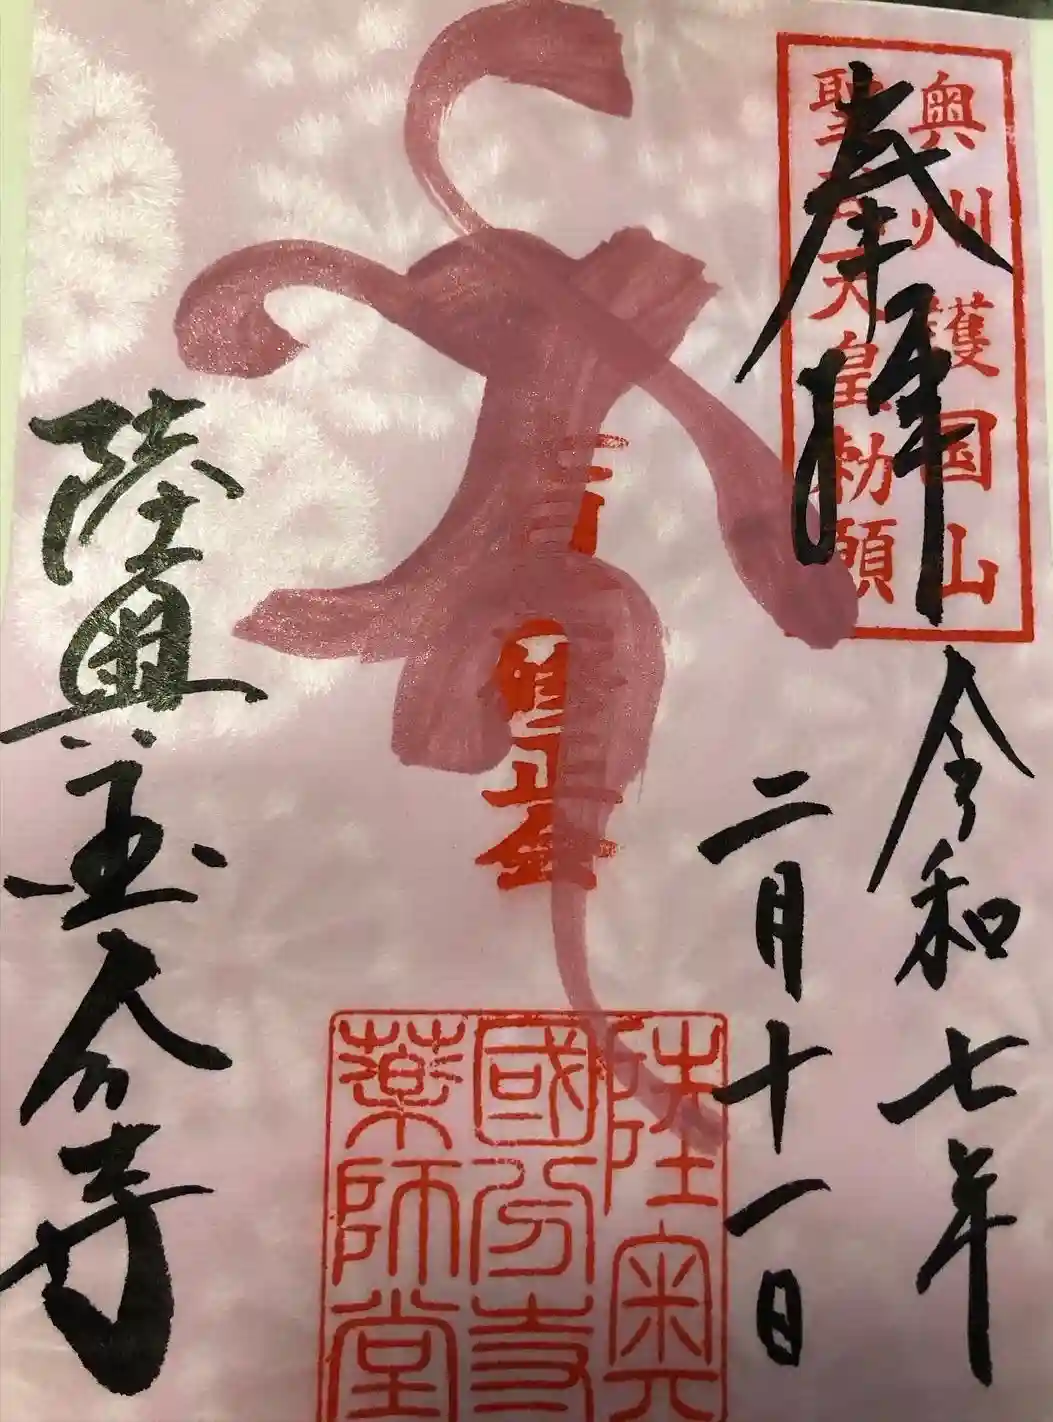 奥州護国山
聖武天皇勅願
奉拝
令和七年
二月十一日
陸奥国分寺
薬師堂
陸奥国分寺